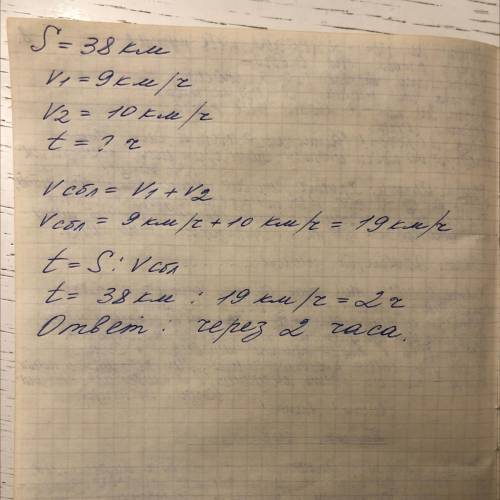 S = 38 км
V1 = 9 км/ч
V2 = 10 км/ч
t = ? ч
Vсбл = V1 + V2
Vсбл = 9 км/ч + 10 км/ч = 19 км/ч
t = S : Vсбл
t = 38 км : 19 км/ч = 2 ч
Ответ : через 2 часа.